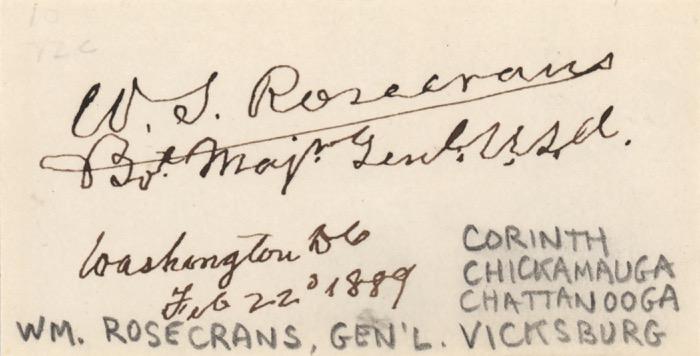 W. S. Rosecrans
Bvt Majr Genl. U.S.A.
Washington DC
Feb 22d 1889
CORINTH
CHICKAMAUGA
CHATTANOOGA
WM. ROSECRANS, GEN'L. VICKSBURG